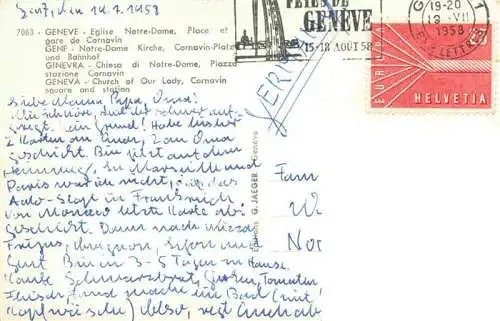 Genf, den 19.7.1958
7063 - GENEVE - Eglise Notre-Dame, Place et
gare de Cornavin
GENF - Notre-Dame Kirche, Cornavin-Platz
und Bahnhof
GINEVRA - Chiesa di Notre-Dame, Piazza
stazione Cornavin
GENEVA - Church of Our Lady, Cornavin
square and station
FETES DE
GENEVE
15-18 AOUT 58
19-20
19 VII
1958
LETTRES
EUROPA
HELVETIA
Liebe Mama, Papa, Oma!
regt. Kein Grund! Habe bisher
2 Karten an Euch, 2 an Oma
geschickt. Bin jetzt auf dem
Heimweg. In Marseille und
Paris war ich nicht, das
Auto-Stop in Frankreich
von Monaco letzte Karte ab-
geschickt. Dann nach Nizza
Frejus, Avignon,
Genf. Bin in 3-5 Tagen zu Hause.
Kaufe Schwarzbrot, Gurken, Tomaten
Fleisch und mache ein Bad (mit
Kopfwäsche) Also, regt Euch ab
Editions G. JAEGER - Genève
Fam
W
Nor